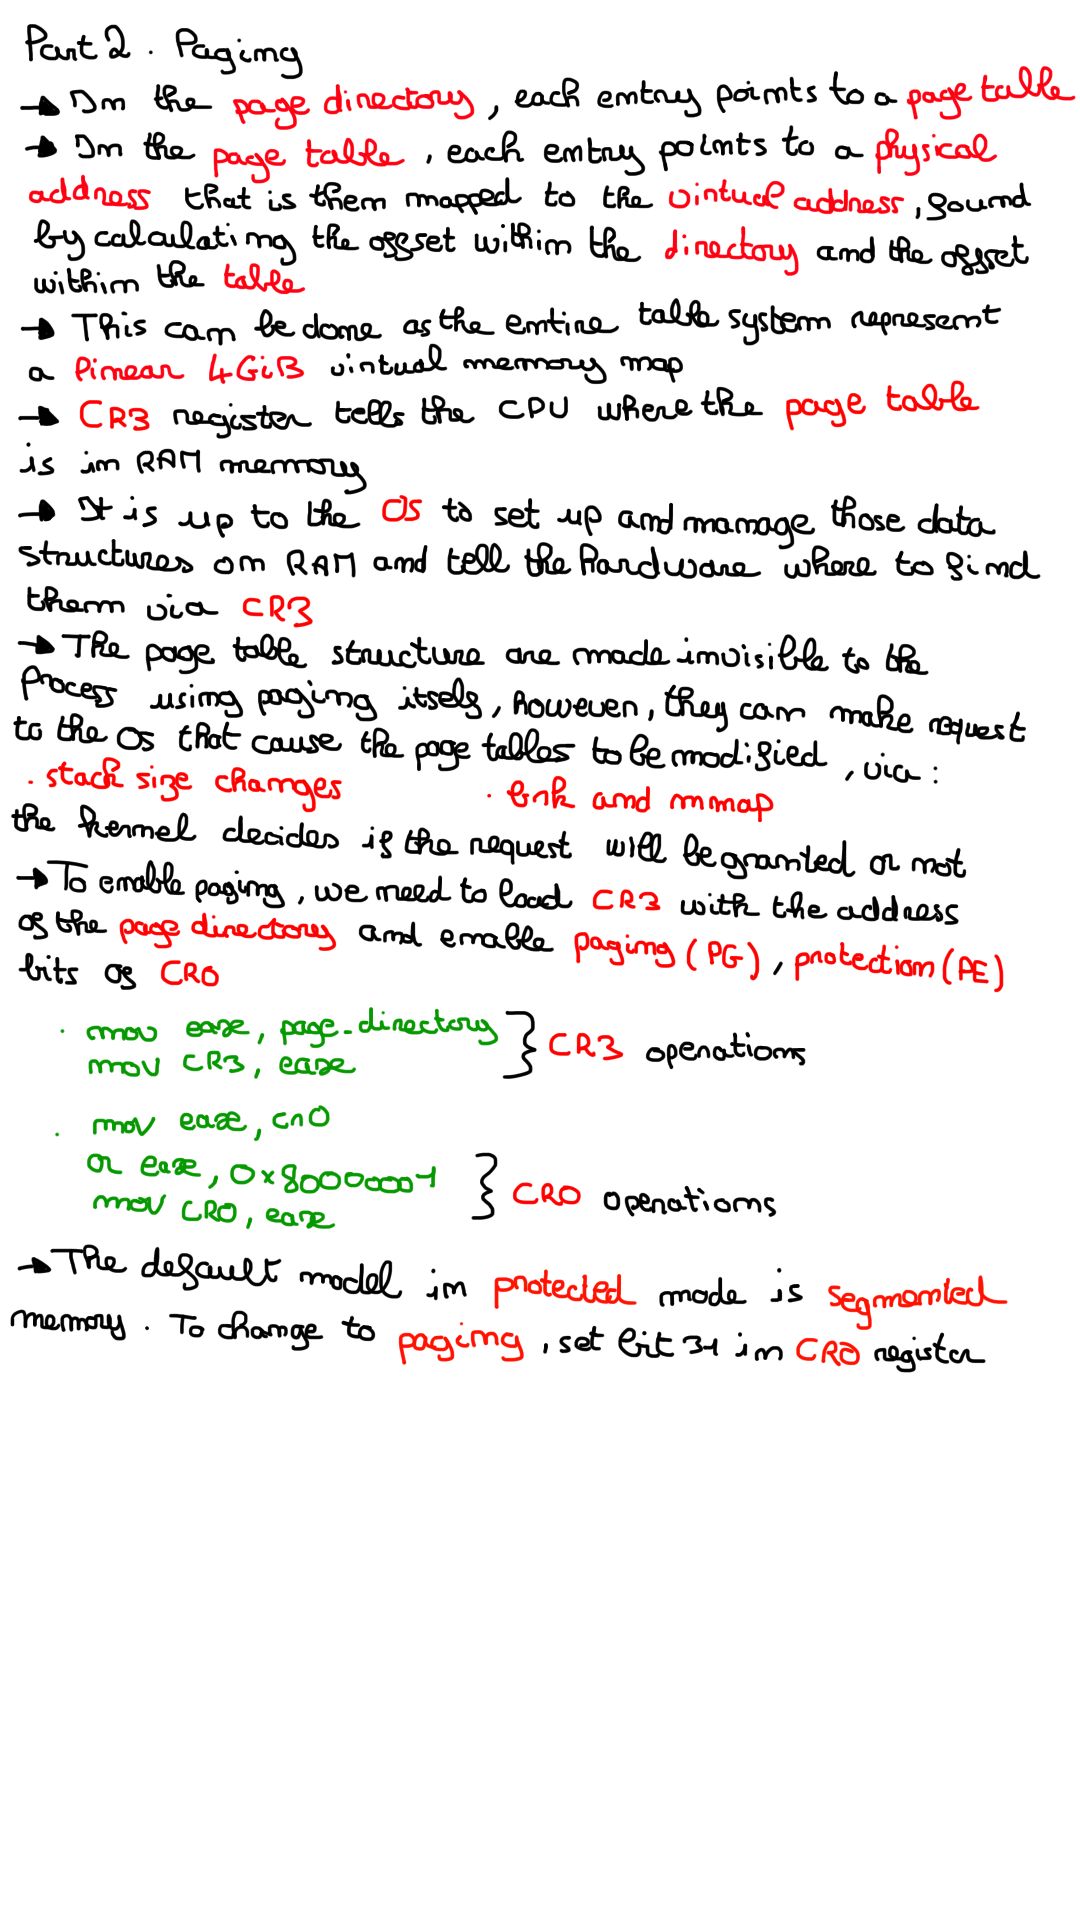 Part 2 . Paging
→ In the page directory, each entry points to a page table
→ In the page table, each entry points to a physical
address that is then mapped to the virtual address, found
by calculating the offset within the directory and the offset
within the table
→ This can be done as the entire table system represent
a linear 4GiB virtual memory map
→ CR3 register tells the CPU where the page table
is in RAM memory
→ It is up to the OS to set up and manage those data
structures on RAM and tell the hardware where to find
them via CR3
→ The page table structure are made invisible to the
process using paging itself, however, they can make request
to the OS that cause the page tables to be modified, via :
. stack size changes . brk and mmap
the kernel decides if the request will be granted or not
→ To enable paging, we need to load CR3 with the address
of the page directory and enable paging (PG), protection (PE)
bits of CR0
. mov eax, page_directory
mov CR3, eax } CR3 operations
. mov eax, cr0
or eax, 0x80000001
mov CR0, eax } CR0 operations
→ The default model in protected mode is segmented
memory. To change to paging, set bit 31 in CR0 register